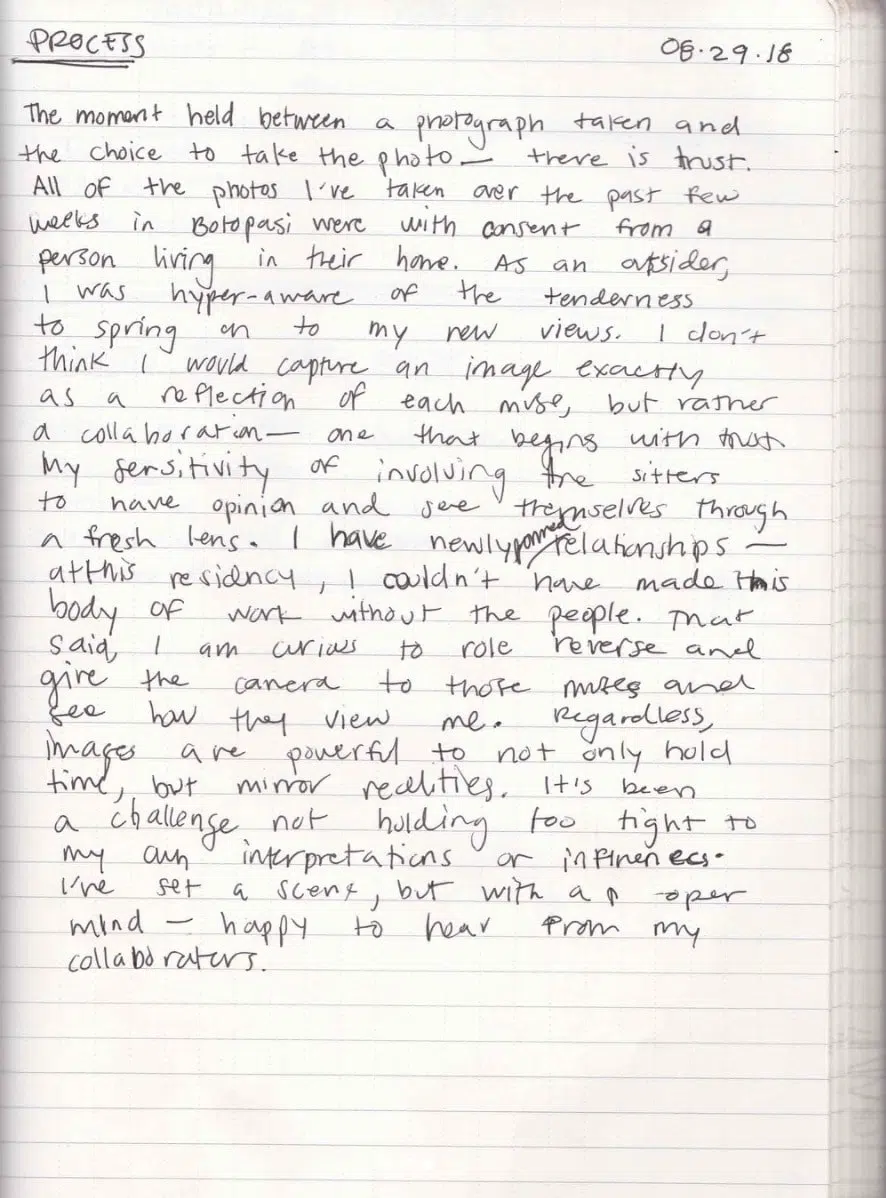 PROCESS 08.29.18
The moment held between a photograph taken and
the choice to take the photo — there is trust.
All of the photos I've taken over the past few
weeks in Botopasi were with consent from a
person living in their home. As an outsider,
I was hyper-aware of the tenderness
to spring on to my new views. I don't
think I would capture an image exactly
as a reflection of each muse, but rather
a collaboration — one that begins with trust.
My sensitivity of involving the sitters
to have opinion and see themselves through
a fresh lens. I have newly formed relationships —
at this residncy, I couldn't have made this
body of work without the people. That
said, I am curious to role reverse and
give the camera to those muses and
see how they view me. Regardless,
images are powerful to not only hold
time, but mirror realities. It's been
a challenge not holding too tight to
my own interpretations or
I've set a scene, but with a open
mind — happy to hear from my
collaboraters.